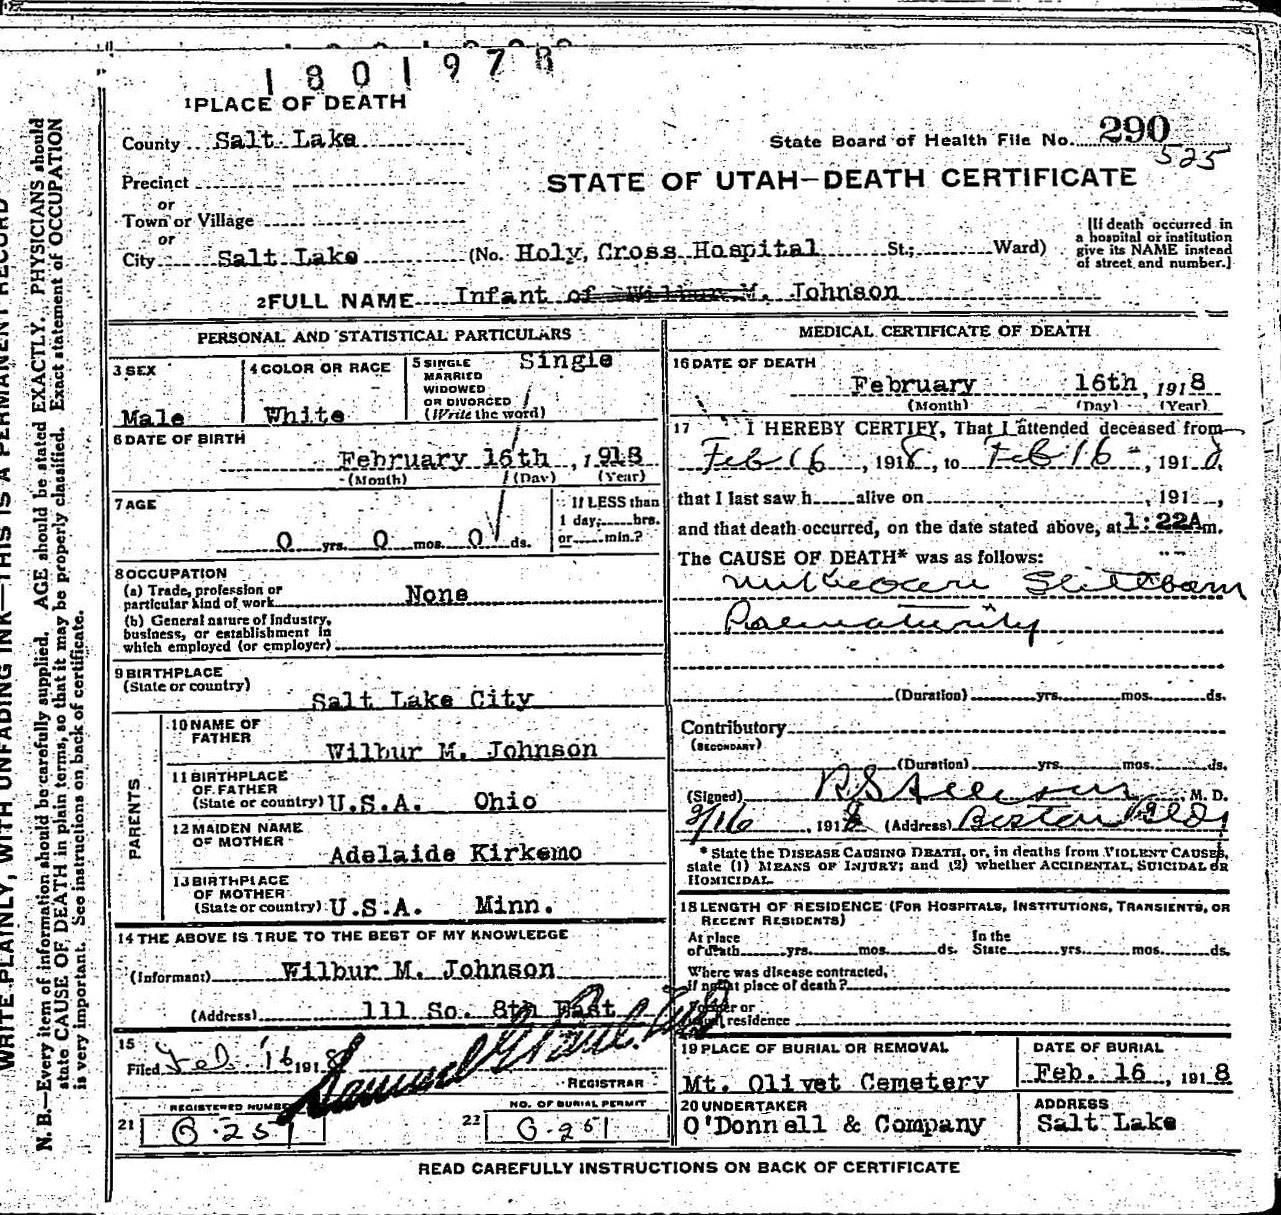 1801978
1 PLACE OF DEATH
County Salt Lake
State Board of Health File No. 290
525
Precinct
or
STATE OF UTAH—DEATH CERTIFICATE
Town or Village
or
City Salt Lake (No. Holy, Cross Hospital St; Ward)
[If death occurred in
a hospital or institution
give its NAME instead
of street and number.]
2 FULL NAME Infant of Wilbur M. Johnson
PERSONAL AND STATISTICAL PARTICULARS
3 SEX
Male
4 COLOR OR RACE
White
5 SINGLE
MARRIED
WIDOWED
OR DIVORCED
(Write the word)
Single
6 DATE OF BIRTH
February 16th, 1918
(Month) (Day) (Year)
7 AGE
0 yrs. 0 mos. 0 ds.
If LESS than
1 day, hrs.
or min.?
8 OCCUPATION
(a) Trade, profession or
particular kind of work None
(b) General nature of Industry,
business, or establishment in
which employed (or employer)
9 BIRTHPLACE
(State or country)
Salt Lake City
PARENTS
10 NAME OF
FATHER
Wilbur M. Johnson
11 BIRTHPLACE
OF FATHER
(State or country) U.S.A. Ohio
12 MAIDEN NAME
OF MOTHER
Adelaide Kirkemo
13 BIRTHPLACE
OF MOTHER
(State or country) U.S.A. Minn.
14 THE ABOVE IS TRUE TO THE BEST OF MY KNOWLEDGE
(Informant) Wilbur M. Johnson
(Address) 111 So. 8th East
15
Filed Feb '16 1918
REGISTRAR
REGISTERED NUMBER
21 B.251
NO. OF BURIAL PERMIT
22 B.251
MEDICAL CERTIFICATE OF DEATH
16 DATE OF DEATH
February 16th, 1918
(Month) (Day) (Year)
17 I HEREBY CERTIFY, That I attended deceased from
Feb 16, 1918, to Feb 16, 1918
that I last saw h alive on , 191 ,
and that death occurred, on the date stated above, at 1:22A m.
The CAUSE OF DEATH* was as follows:
Stillborn
Prematurity
(Duration) yrs. mos. ds.
Contributory
(SECONDARY)
(Duration) yrs. mos. ds.
(Signed) R S Allison, M. D.
2/16, 1918 (Address) Boston Bldg
* State the DISEASE CAUSING DEATH, or, in deaths from VIOLENT CAUSES,
state (1) MEANS OF INJURY; and (2) whether ACCIDENTAL, SUICIDAL or
HOMICIDAL.
18 LENGTH OF RESIDENCE (FOR HOSPITALS, INSTITUTIONS, TRANSIENTS, OR
RECENT RESIDENTS)
At place
of death yrs. mos. ds.
In the
State yrs. mos. ds.
Where was disease contracted,
if not at place of death?
Former or
usual residence
19 PLACE OF BURIAL OR REMOVAL
Mt. Olivet Cemetery
DATE OF BURIAL
Feb. 16, 1918
20 UNDERTAKER
O'Donnell & Company
ADDRESS
Salt Lake
READ CAREFULLY INSTRUCTIONS ON BACK OF CERTIFICATE
WRITE PLAINLY, WITH UNFADING INK—THIS IS A PERMANENT RECORD
N. B.—Every item of information should be carefully supplied. AGE should be stated EXACTLY. PHYSICIANS should
state CAUSE OF DEATH in plain terms, so that it may be properly classified. Exact statement of OCCUPATION
is very important. See instructions on back of certificate.